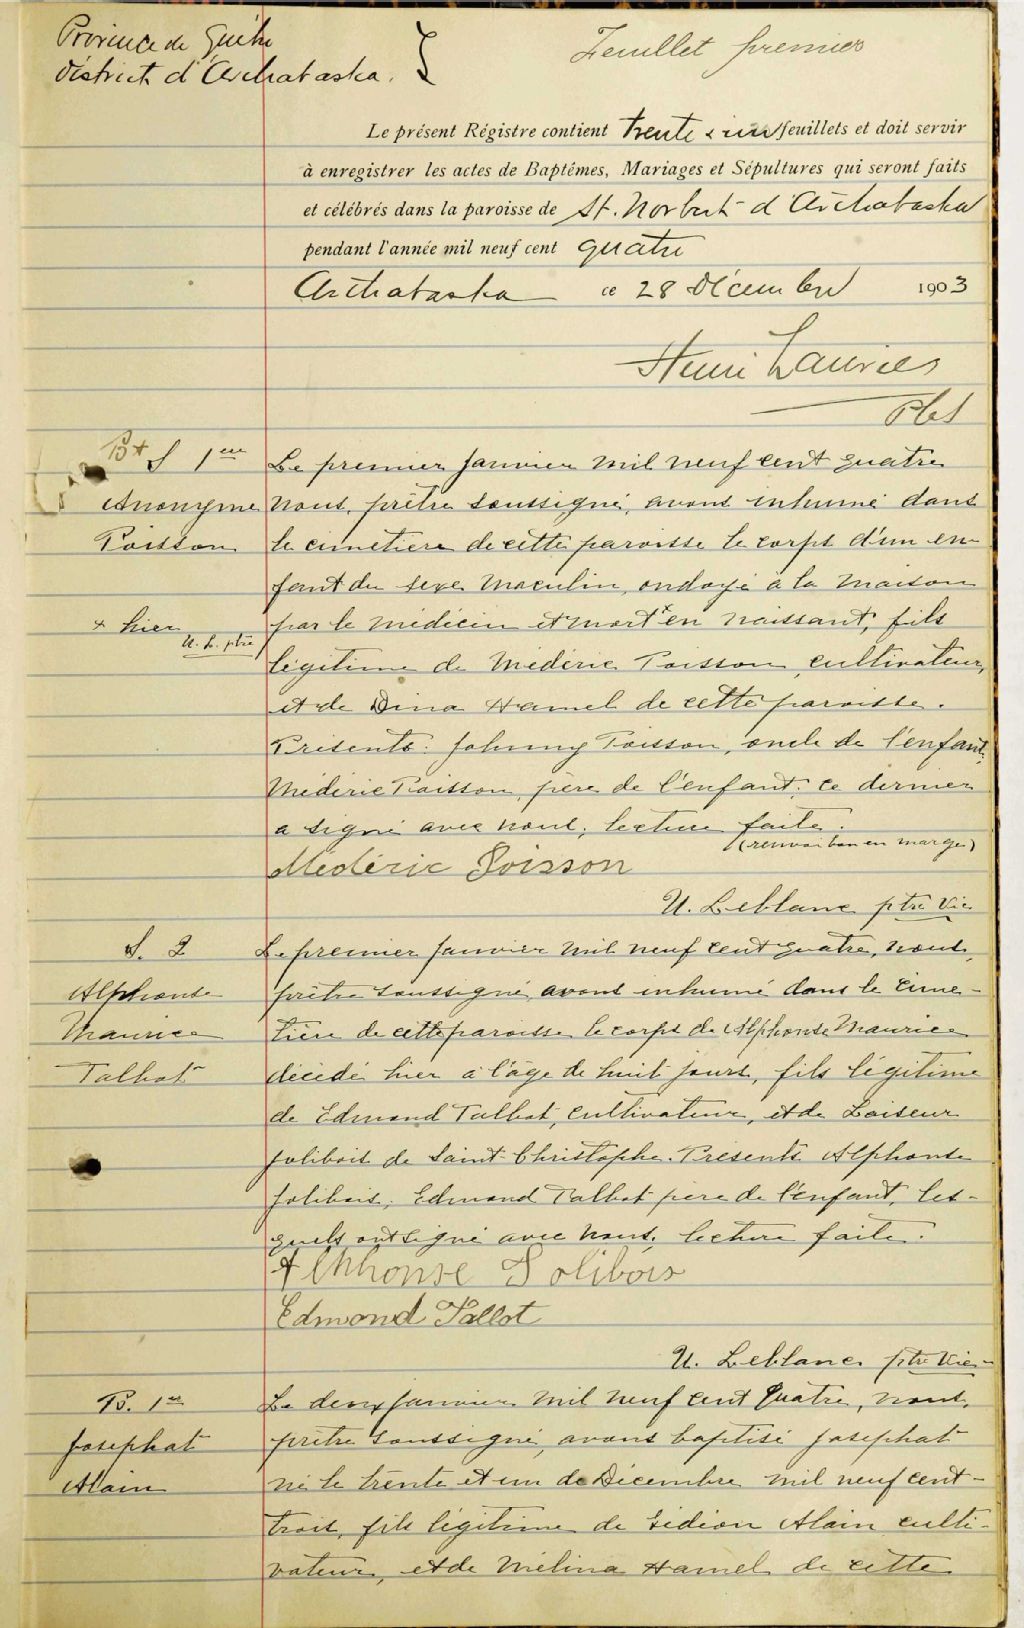 Province de Québec
District d'Arthabaska.
Feuillet premier
Le présent Régistre contient trente & un feuillets et doit servir
à enregistrer les actes de Baptêmes, Mariages et Sépultures qui seront faits
et célébrés dans la paroisse de St. Norbert d'Arthabaska
pendant l'année mil neuf cent quatre
Arthabaska ce 28 Décembre 1903
Henri Laurier
B+ S 1ere
Anonyme
Poisson
+ hier
U. L. ptre
Le premier Janvier mil neuf cent quatre
nous, prêtre soussigné, avons inhumé dans
le cimetière de cette paroisse le corps d'un en-
fant du sexe masculin, ondoyé à la maison
par le médecin et mort + en naissant, fils
légitime de Médéric Poisson, cultivateur,
et de Dina Hamel de cette paroisse.
Présents: Johnny Poisson, oncle de l'enfant,
Médéric Poisson, père de l'enfant; ce dernier
a signé avec nous; lecture faite.
(renvoi bon en marge)
Médéric Poisson
U. Leblanc ptre Vic.
S. 2
Alphonse
Maurice
Talbot
Le premier Janvier mil neuf cent quatre, nous,
prêtre soussigné, avons inhumé dans le cime-
tière de cette paroisse le corps de Alphonse Maurice
décédé hier à l'âge de huit jours, fils légitime
de Edmond Talbot, cultivateur, et de
Jolibois de Saint-Christophe. Présents Alphonse
Jolibois, Edmond Talbot père de l'enfant, les-
quels ont signé avec nous; lecture faite.
Alphonse Jolibois
Edmond Talbot
U. Leblanc ptre Vic-
B. 1er
Josephat
Alain
Le deux Janvier mil neuf cent quatre, nous,
prêtre soussigné, avons baptisé Josephat
né le trente et un de Décembre mil neuf cent-
trois, fils légitime de Gédéon Alain culti-
vateur, et de Mélina Hamel de cette